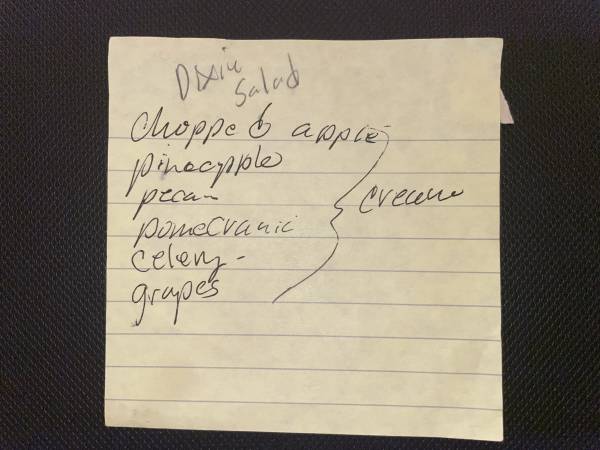 Dixie
Salad
chopped apple
pineapple
pecan
pomecranic
celery -
grapes
cream